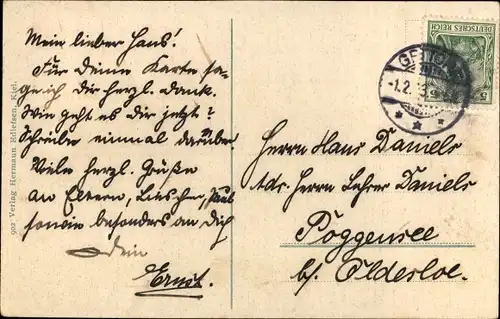 Mein lieber Hans!
Für Deine Karte sa-
ge ich Dir herzl. Dank.
Wie geht es Dir jetzt?
Schreibe einmal darüber.
Viele herzl. Grüße
an Eltern, Lieschen, Paul
sowie besonders an Dich
Dein
Ernst.
902 Verlag Hermann Edlefsen, Kiel.
DEUTSCHES REICH
5
-1.2.13
Herrn Hans Daniels
Adr. Herrn Lehrer Daniels
Poggensee
b/ Oldesloe.